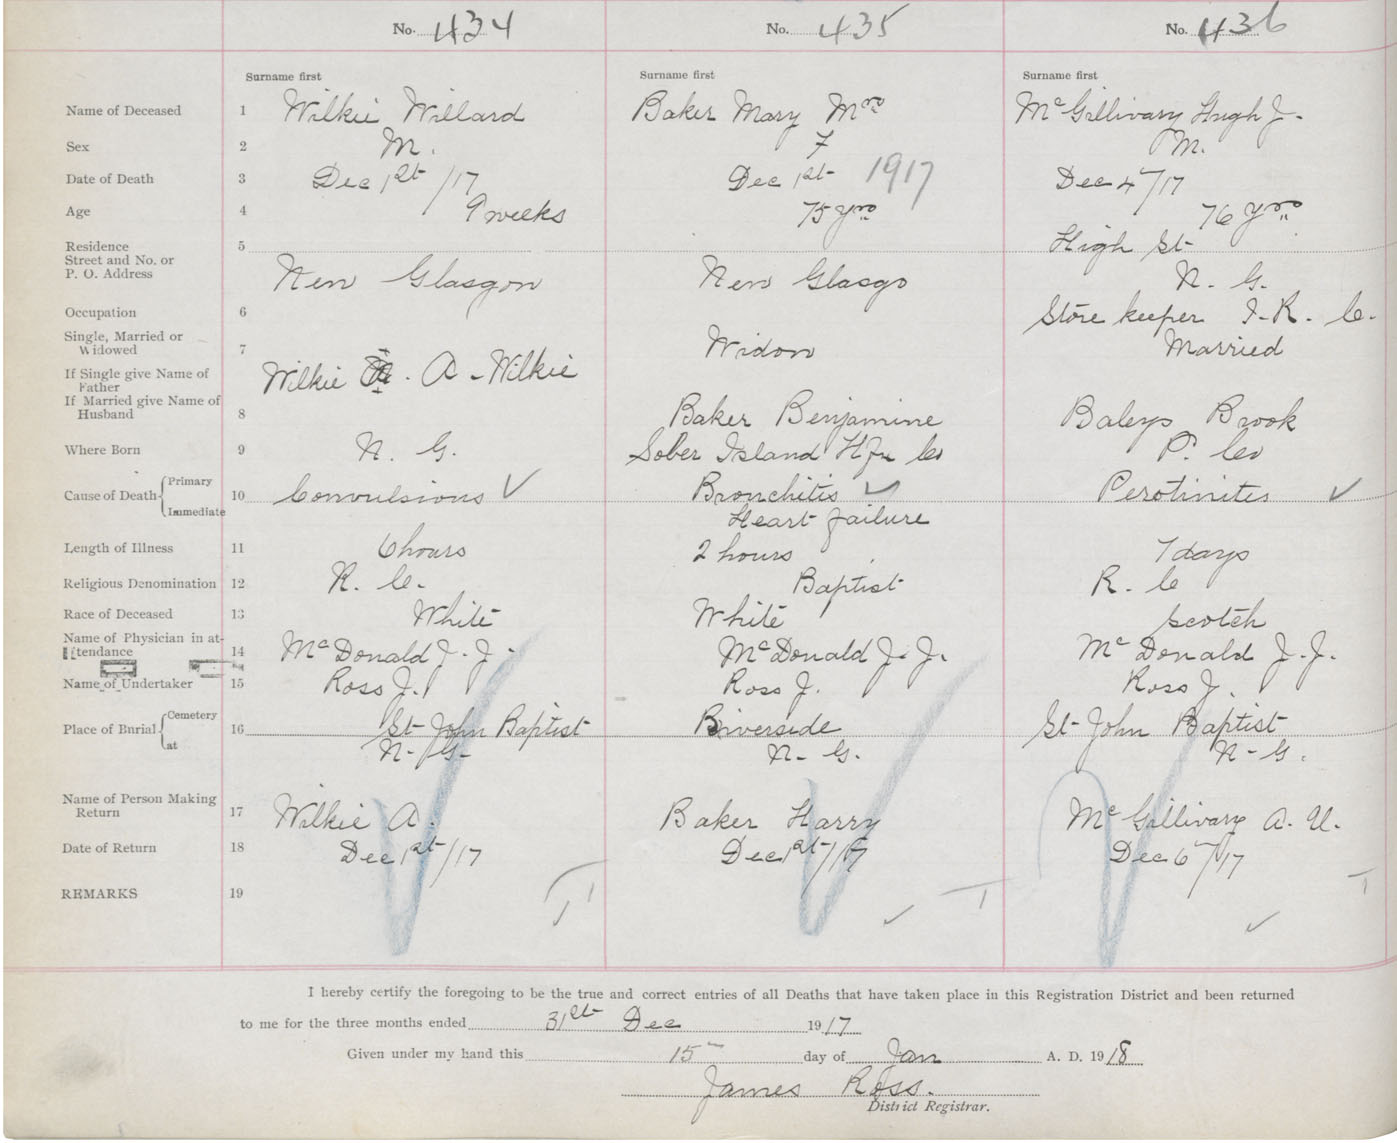 No. 434 No. 435 No. 436
Surname first Surname first Surname first
Name of Deceased 1 Wilkie Willard Baker Mary Mrs McGillivary Hugh J.
Sex 2 M. F M.
Date of Death 3 Dec 1st/17 Dec 1st 1917 Dec 4/17
Age 4 9 weeks 75 yrs 76 yrs
Residence 5 High St
Street and No. or
P. O. Address New Glasgow New Glasgo N. G.
Occupation 6 Store keeper I. R. C.
Single, Married or
Widowed 7 Widow Married
If Single give Name of
Father Wilkie A - Wilkie
If Married give Name of
Husband 8 Baker Benjamine Baleys Brook
Where Born 9 N. G. Sober Island Hfx Co P. Co
Cause of Death Primary
Immediate 10 Convulsions Bronchitis Perotinites
Heart failure
Length of Illness 11 6 hours 2 hours 7 days
Religious Denomination 12 R. C. Baptist R. C
Race of Deceased 13 White White Scotch
Name of Physician in at-
tendance 14 McDonald J. J. McDonald J. J. McDonald J. J.
Name of Undertaker 15 Ross J. Ross J. Ross J.
Place of Burial Cemetery
at 16 St John Baptist Riverside St John Baptist
N- G- N- G. N- G.
Name of Person Making
Return 17 Wilkie A. Baker Harry McGillivary A. U.
Date of Return 18 Dec 1st/17 Dec 1st/17 Dec 6/17
REMARKS 19
I hereby certify the foregoing to be the true and correct entries of all Deaths that have taken place in this Registration District and been returned
to me for the three months ended 31st Dec 1917
Given under my hand this 15 day of Jan A. D. 1918
James Ross.
District Registrar.